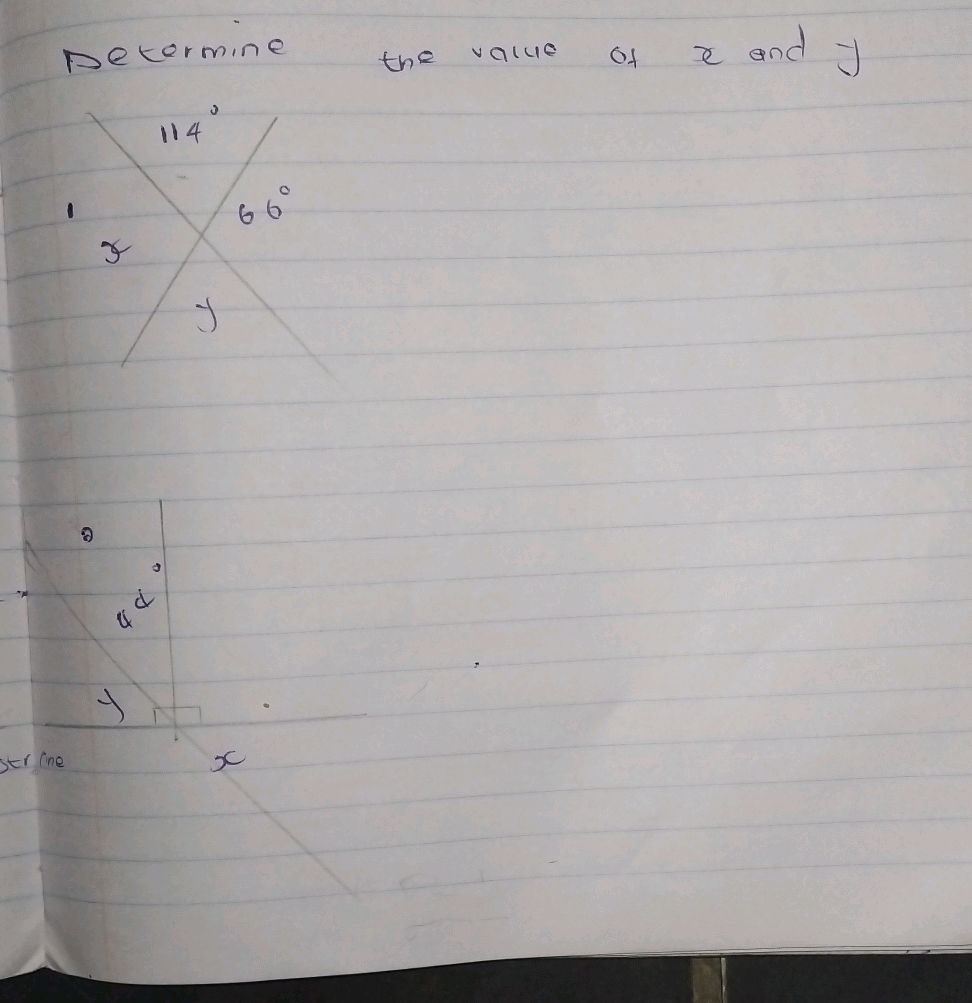 Determine the value of x and y
1
114°
66°
x
y
2
44°
y
x